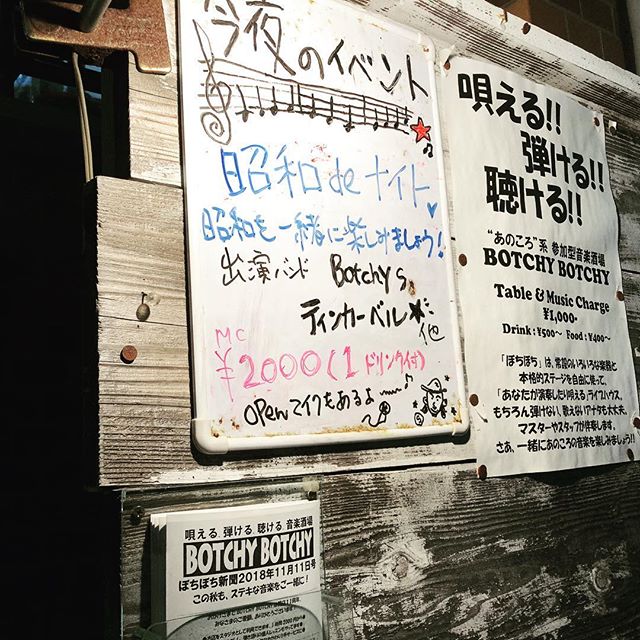 今夜のイベント
昭和deナイト
昭和を一緒に楽しみましょう!
出演バンド Botchy's,
ティンカーベル★ 他
MC
¥2000(1ドリンク付)
openマイクもあるよ〜♪
唄える!!
弾ける!!
聴ける!!
"あのころ"系 参加型音楽酒場
BOTCHY BOTCHY
Table & Music Charge
¥1,000-
Drink : ¥500〜 Food : ¥400〜
「ぼちぼち」は、常設のいろいろな楽器と
本格的ステージを自由に使って、
「あなたが演奏したり唄える」ライブハウス。
もちろん弾けない、歌えないアナタも大丈夫。
マスターやスタッフが伴奏します。
さあ、一緒にあのころの音楽を楽しみましょう!!
唄える 弾ける 聴ける 音楽酒場
BOTCHY BOTCHY
ぼちぼち新聞2018年11月11日号
この秋も、ステキな音楽をご一緒に!